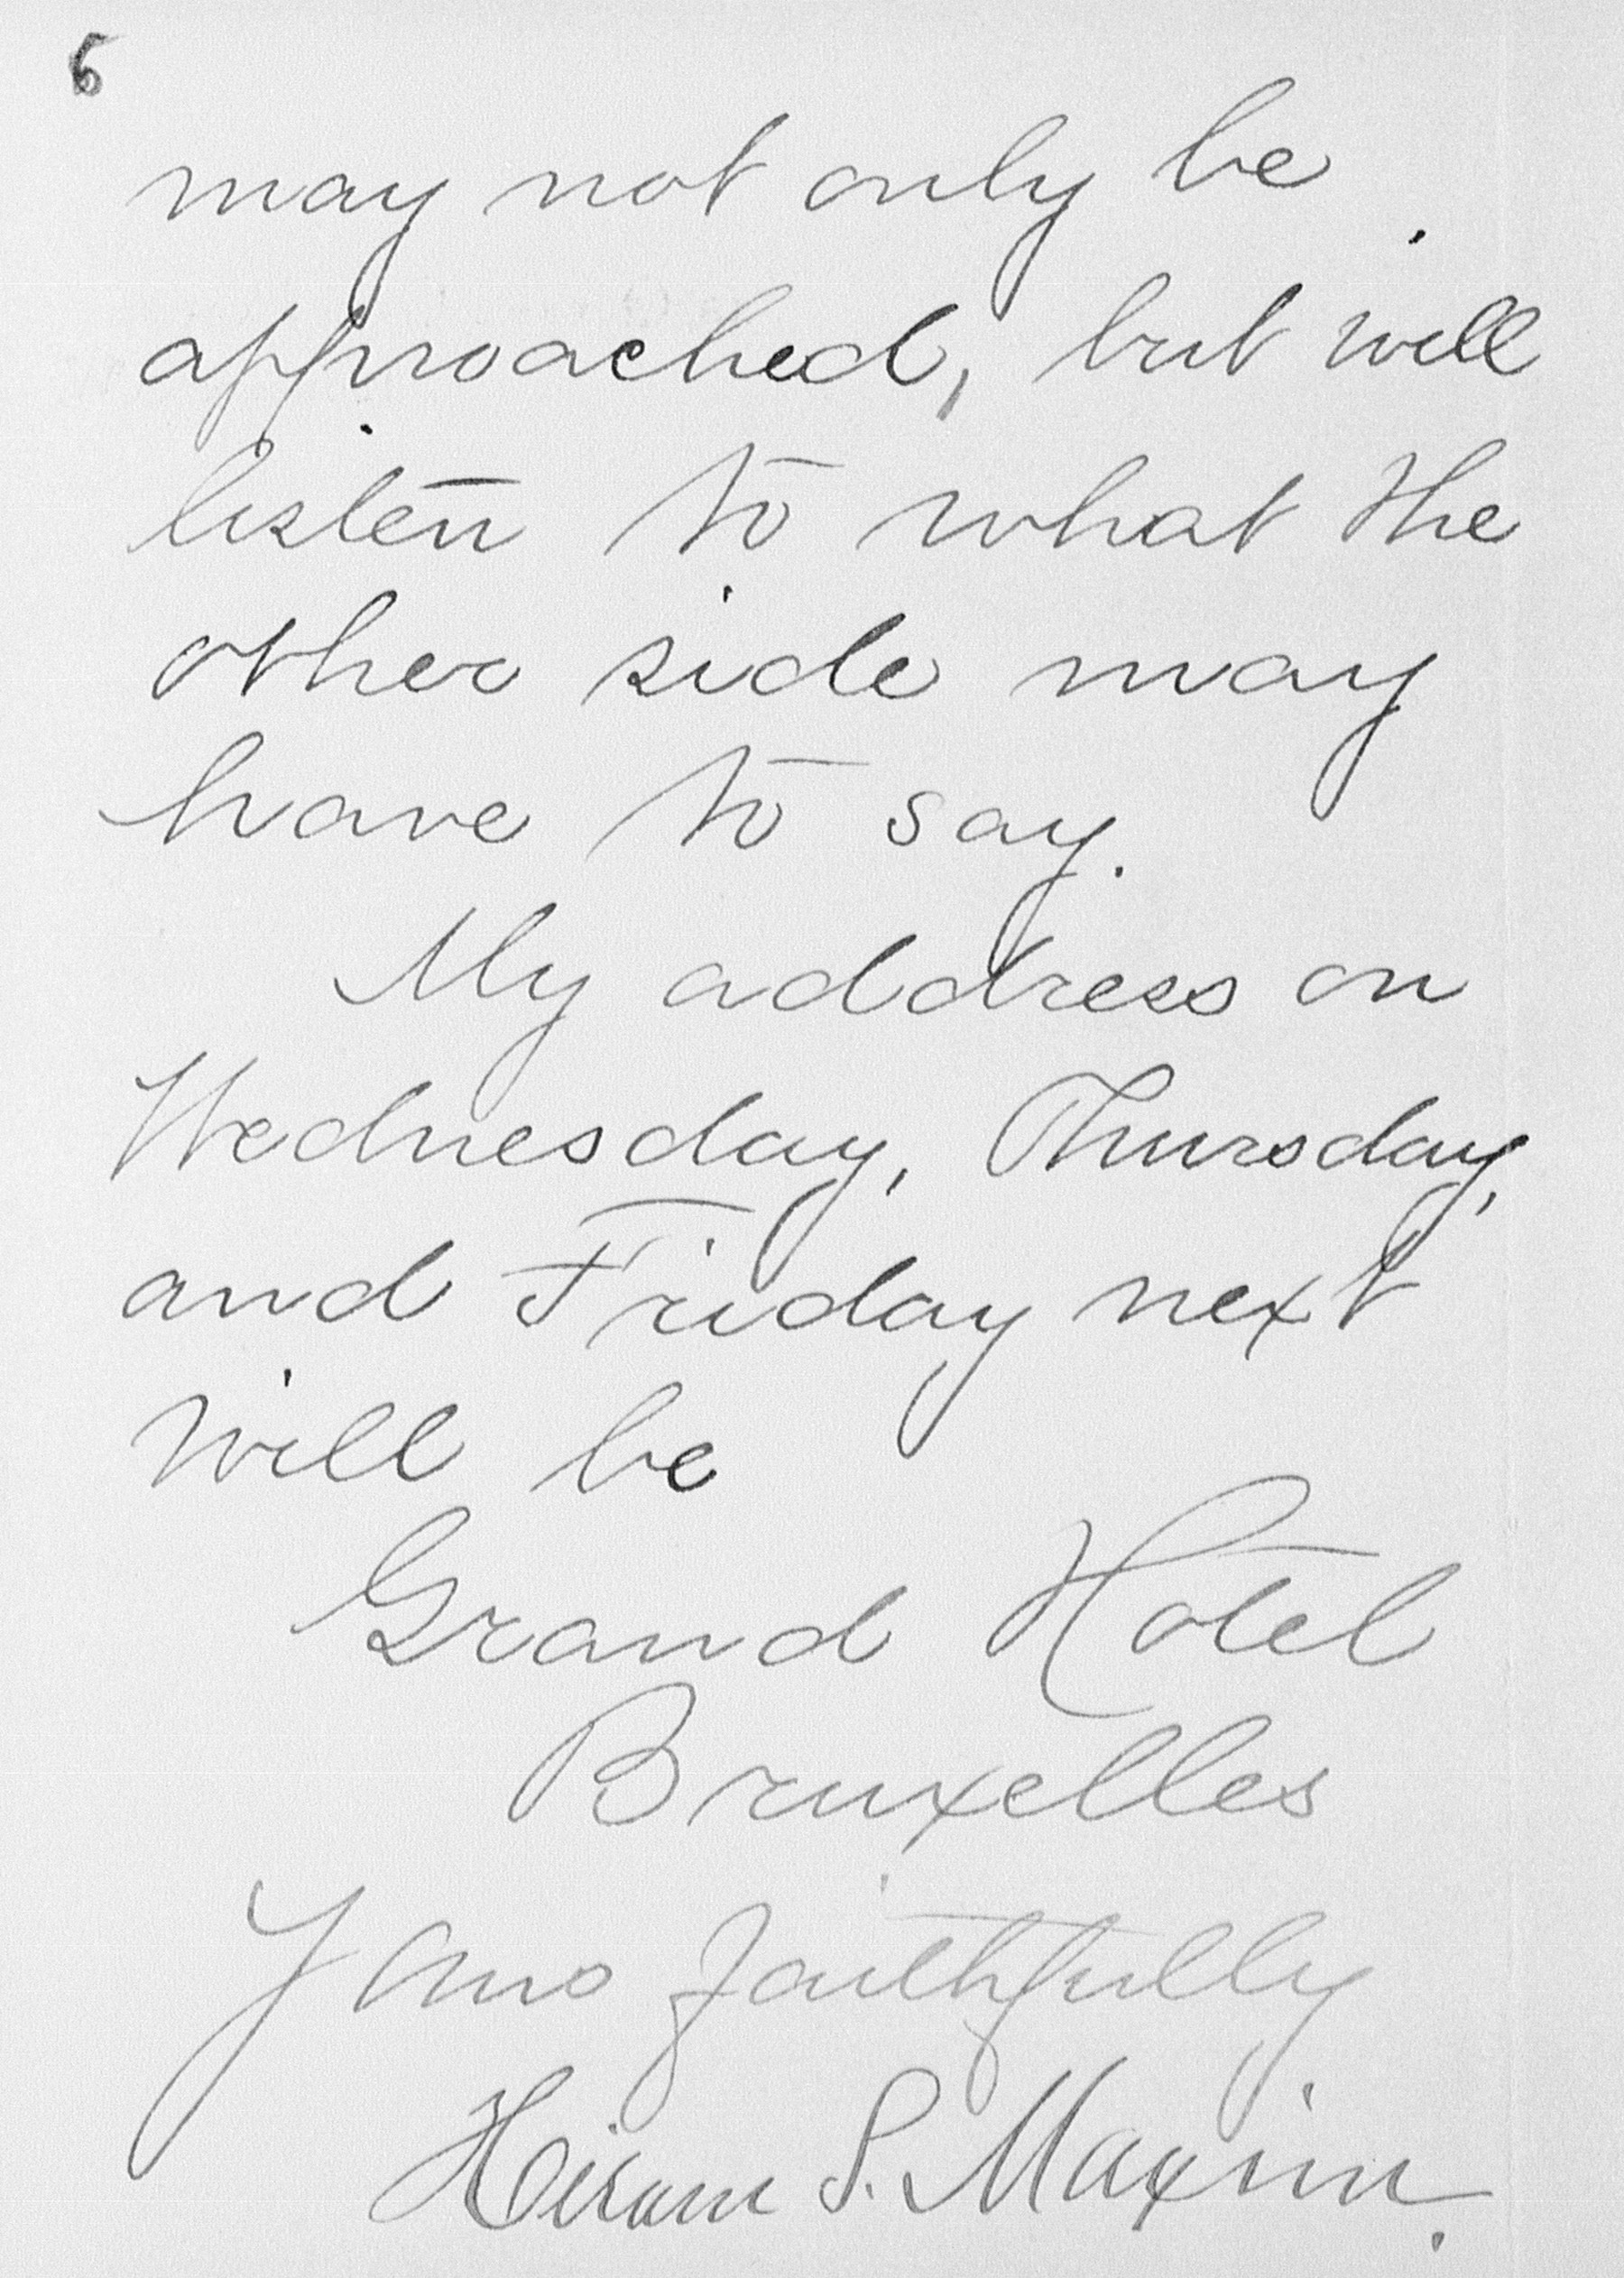 6
may not only be
approached, but will
listen to what the
other side may
have to say.
My address on
Wednesday, Thursday,
and Friday next
will be
Grand Hotel
Bruxelles
Yours faithfully
Hiram S. Maxim.